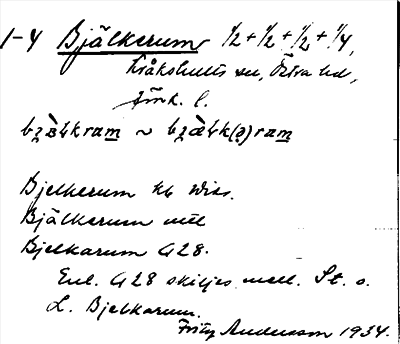 1-4 Bjälkerum 1/2 + 1/2 + 1/2 + 1/4,
Kråkshults sn, Östra hd,
Jönk. l.
Bjelkerum kb Wiss.
Bjälkerum
Bjelkarum G 28.
Enl. G 28 skiljes mell. St. o.
L. Bjelkarum.
Fritz Andersson 1934.